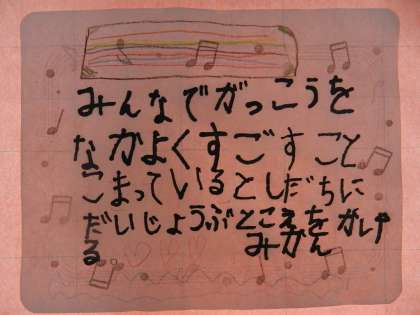 みんなでがっこうを
なかよくすごすこと
こまっているとしだちに
だいじょうぶとこえをかけ
る。 みかん